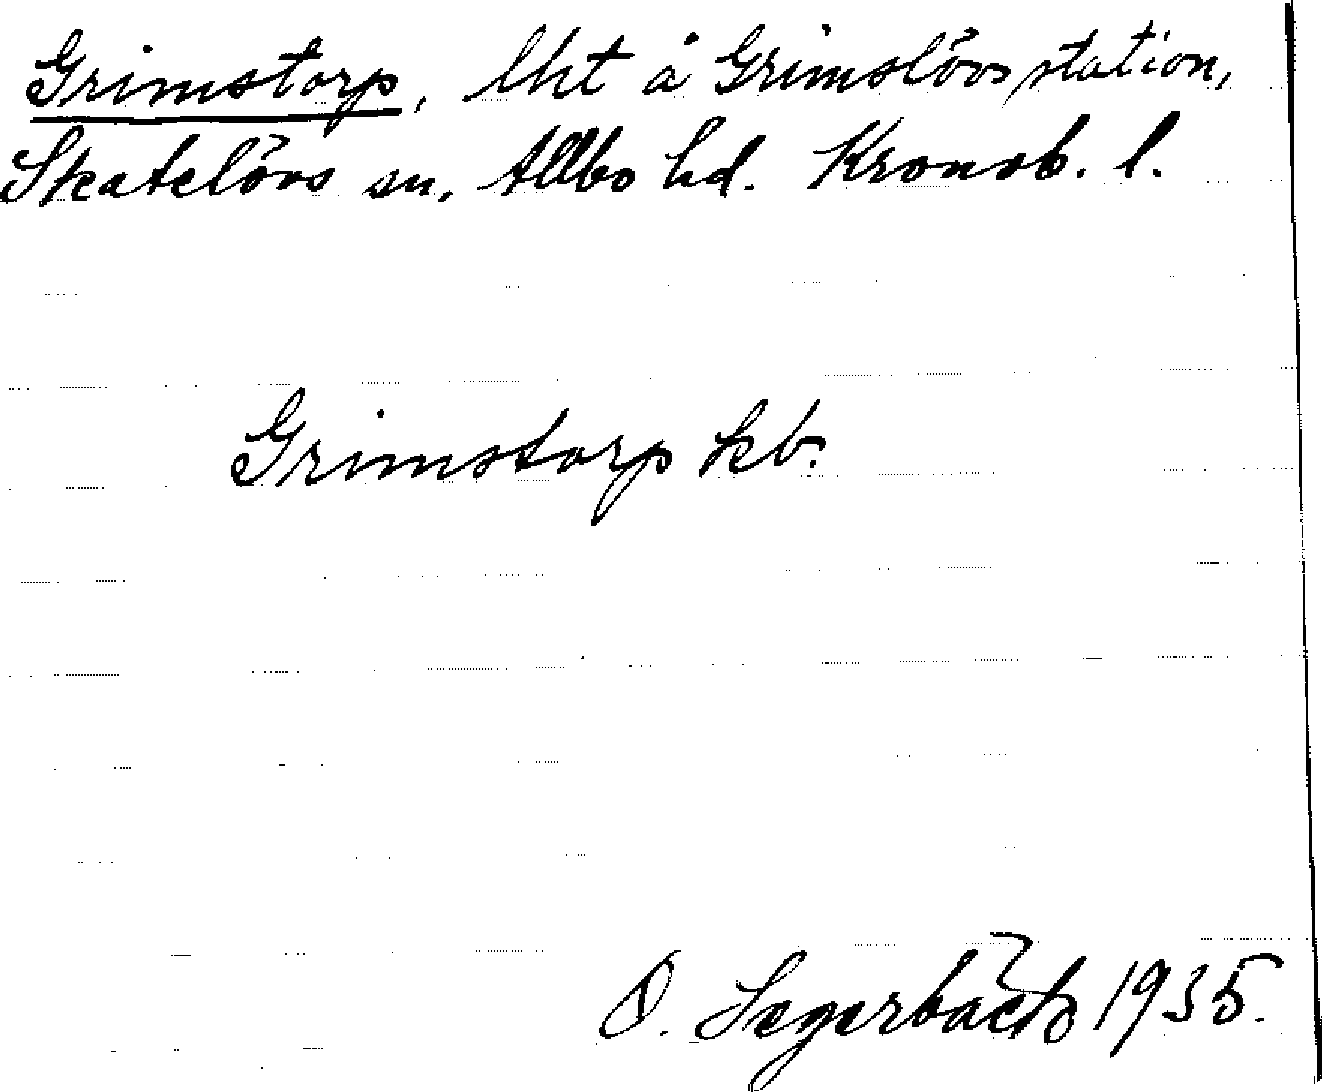 Grimstorp, lht å Grimslövs station,
Skatelövs sn, Allbo hd. Kronob. l.
Grimstorp kb.
O. Segerbäck 1935.